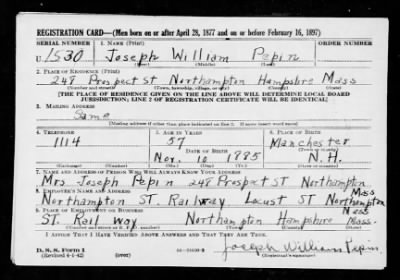 REGISTRATION CARD—(Men born on or after April 28, 1877 and on or before February 16, 1897)
SERIAL NUMBER 1. NAME (Print) ORDER NUMBER
U 1530 Joseph William Pepin
(First) (Middle) (Last)
2. PLACE OF RESIDENCE (Print)
248 Prospect St Northampton Hampshire Mass
(Number and street) (Town, township, village, or city) (County) (State)
[THE PLACE OF RESIDENCE GIVEN ON THE LINE ABOVE WILL DETERMINE LOCAL BOARD
JURISDICTION; LINE 2 OF REGISTRATION CERTIFICATE WILL BE IDENTICAL]
3. MAILING ADDRESS
Same
[Mailing address if other than place indicated on line 2. If same insert word same]
4. TELEPHONE 5. AGE IN YEARS 6. PLACE OF BIRTH
1114 57 Manchester
DATE OF BIRTH (Town or county)
Nov. 10 1885 N.H.
(Exchange) (Number) (Mo.) (Day) (Yr.) (State or country)
7. NAME AND ADDRESS OF PERSON WHO WILL ALWAYS KNOW YOUR ADDRESS
Mrs Joseph Pepin 248 Prospect ST Northampton
Mass
8. EMPLOYER'S NAME AND ADDRESS
Northampton ST. Railway Locust ST Northampton
Mass
9. PLACE OF EMPLOYMENT OR BUSINESS
ST. Rail Way Northampton Hampshire Mass.
(Number and street or R. F. D. number) (Town) (County) (State)
I AFFIRM THAT I HAVE VERIFIED ABOVE ANSWERS AND THAT THEY ARE TRUE.
D. S. S. Form 1
(Revised 4-1-42) (over)
Joseph William Pepin
(Registrant's signature)